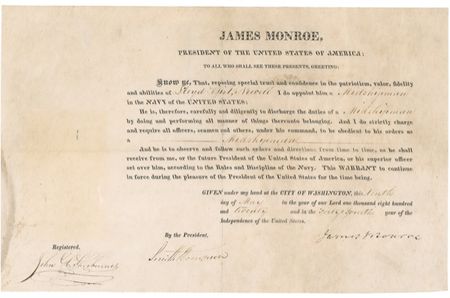 JAMES MONROE,
PRESIDENT OF THE UNITED STATES OF AMERICA:
TO ALL WHO SHALL SEE THESE PRESENTS, GREETING:
Know ye, That, reposing special trust and confidence in the patriotism, valor, fidelity
and abilities of I do appoint him a Midshipman
in the NAVY of the UNITED STATES:
He is, therefore, carefully and diligently to discharge the duties of a Midshipman
by doing and performing all manner of things thereunto belonging. And I do strictly charge
and require all officers, seamen and others, under his command, to be obedient to his orders as
a Midshipman
And he is to observe and follow such orders and directions from time to time, as he shall
receive from me, or the future President of the United States of America, or his superior officer
set over him, according to the Rules and Discipline of the Navy. This WARRANT to continue
in force during the pleasure of the President of the United States for the time being.
GIVEN under my hand at the CITY OF WASHINGTON, this tenth
day of May in the year of our Lord one thousand eight hundred
and twenty and in the forty fourth year of the
Independence of the United States.
By the President, James Monroe
Smith Thompson
Registered.
John